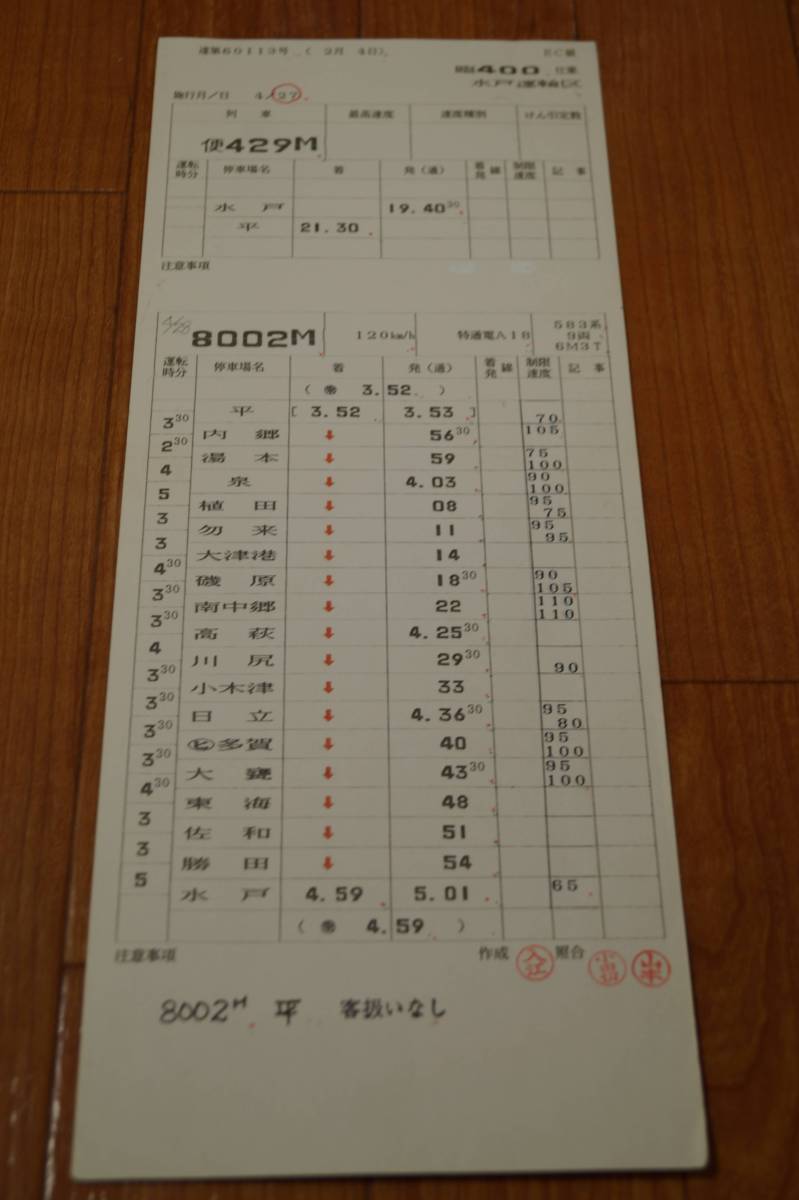 運第60113号 ( 2月 4日)
臨400 仕業
水戸運輸区
施行月/日 4/27
列 車 最高速度 速度種別 けん引定数
便429M
運転時分 停車場名 着 発(通) 着発線 制限速度 記 事
水 戸 19.40 30
平 21.30
注意事項
4/28 8002M 120km/h 特通電A18 583系 9両 6M3T
運転時分 停車場名 着 発(通) 着発線 制限速度 記 事
( 3.52 )
平 [ 3.52 3.53 ] 70
3 30
内 郷 ↓ 56 30 105
2 30
湯 本 ↓ 59 75 100
4
泉 ↓ 4.03 90 100
5
植 田 ↓ 08 95 75
3
勿 来 ↓ 11 95 95
3
大津港 ↓ 14
4 30
磯 原 ↓ 18 30 90 105
3 30
南中郷 ↓ 22 110 110
3 30
高 萩 ↓ 4.25 30
4
川 尻 ↓ 29 30 90
3 30
小木津 ↓ 33
3 30
日 立 ↓ 4.36 30 95 80
3 30
㋪多賀 ↓ 40 95 100
3 30
大 甕 ↓ 43 30 95 100
4 30
東 海 ↓ 48
3
佐 和 ↓ 51
3
勝 田 ↓ 54
5
水 戸 4.59 5.01 65
( 4.59 )
注意事項 作成 照合
8002M 平 客扱いなし